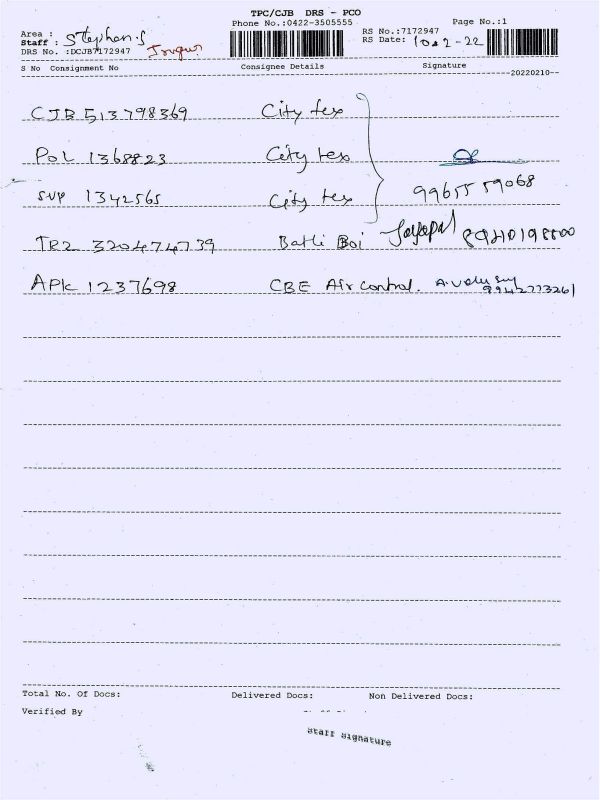 TPC/CJB DRS - PCO
Phone No.:0422-3505555 Page No.:1
Area :
Staff : Stephen.S
RS No.:7172947
RS Date: 10.2-22
DRS No. :DCJB7172947 Irugur
S No Consignment No Consignee Details Signature
20220210
CJB 513798369 City tex
POL 1368823 City tex
SVP 1342565 City tex 9965559068
TRZ 320474739 Batli Boi Jayapal
APK 1237698 CBE Air control. 9942773261
Total No. Of Docs: Delivered Docs: Non Delivered Docs:
Verified By
Staff Signature